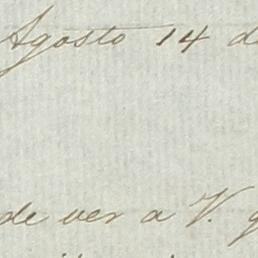 Agosto 14 d
de ver a V. g